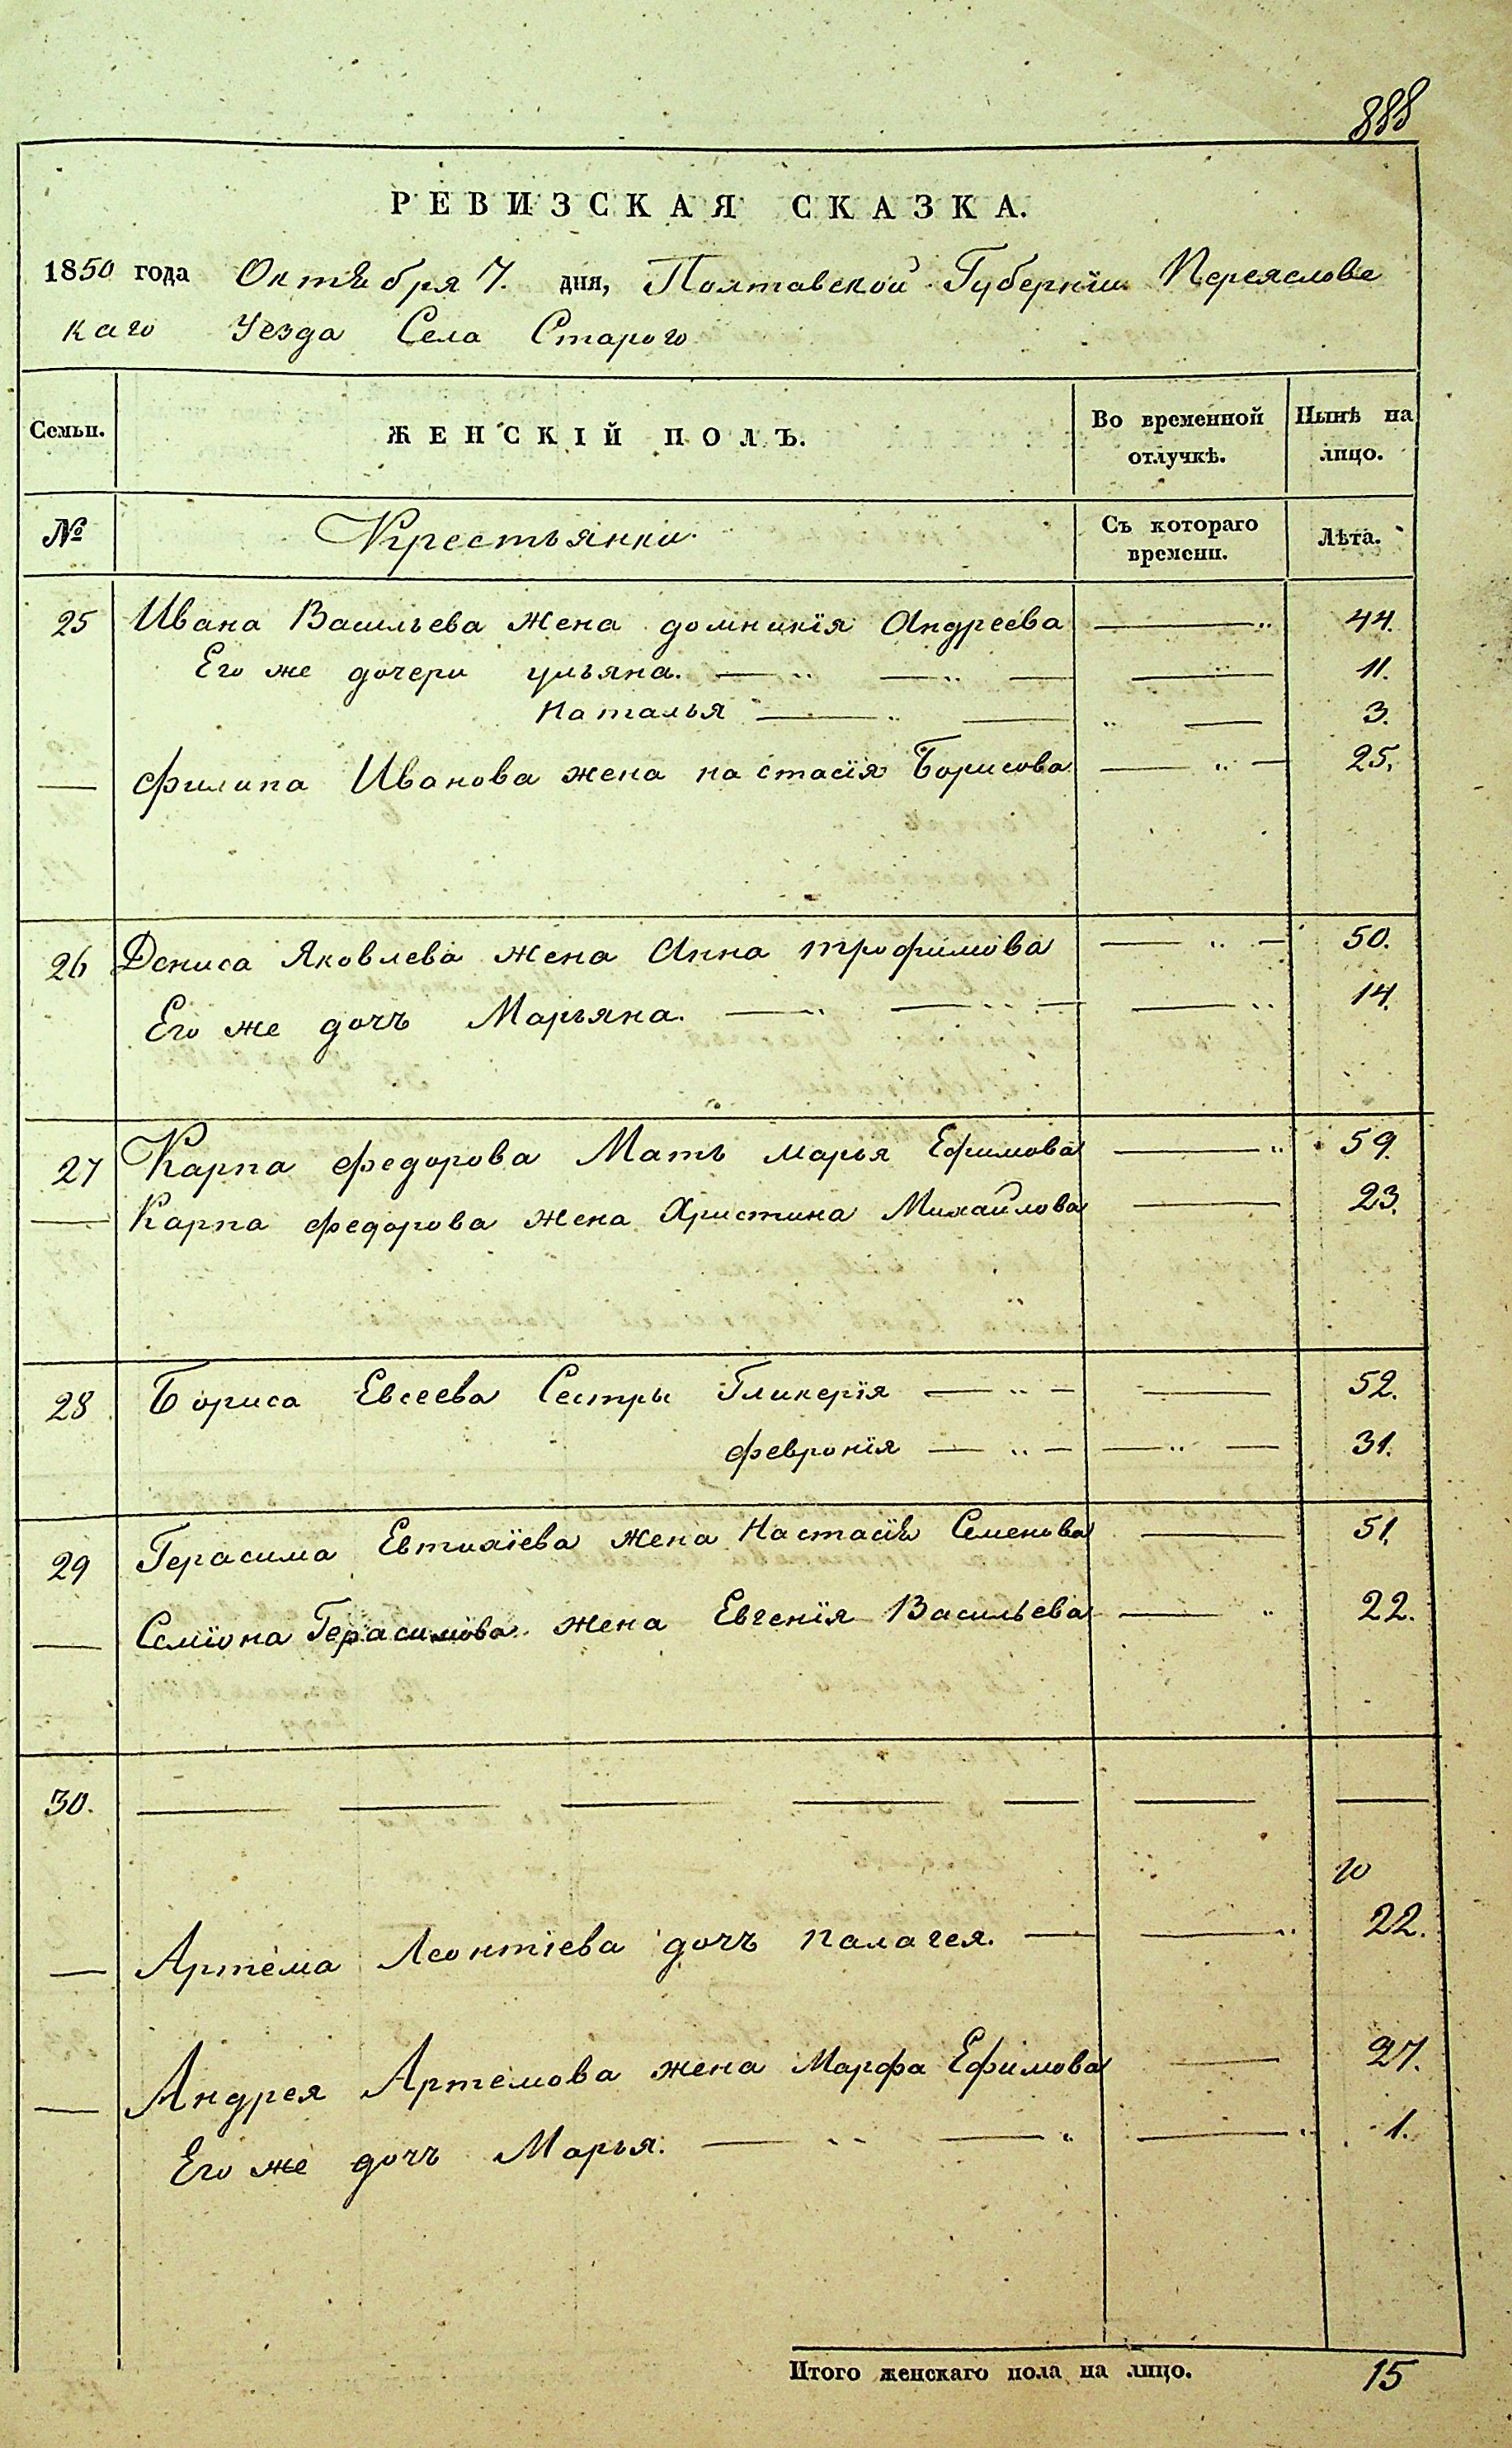 888
РЕВИЗСКАЯ СКАЗКА.
1850 года Октября 7. дня, Полтавской Губернiи Переяслове
каго Уезда Села Старого
Семьи. ЖЕНСКIЙ ПОЛЪ. Во временной отлучкѣ. Нынѣ на лицо.
№ Крестьянки. Съ котораго времени. Лѣта.
25 Ивана Васильева жена домникiя Андреева — 44.
Его же дочери ульяна. — 11.
Наталья — 3.
— филипа Иванова жена настасiя Борисова — 25.
26 Дениса Яковлева жена Анна трофимова — 50.
Его же дочъ Марьяна. — 14.
27 Карпа федорова Мать марья Ефимова — 59.
— Карпа федорова жена Христина Михайлова — 23.
28 Бориса Евсеева Сестры Гликерiя — 52.
февронiя — 31.
29 Герасима Евтихiева жена Настасiя Семенова — 51.
— Семiона Герасимова жена Евгенiя Васильева — 22.
30. — — —
10
— Артема Леонтiева дочъ палагея. — 22.
— Андрея Артемова жена Марфа Ефимова — 27.
Его же дочъ Марья. — 1.
Итого женскаго пола на лицо. 15